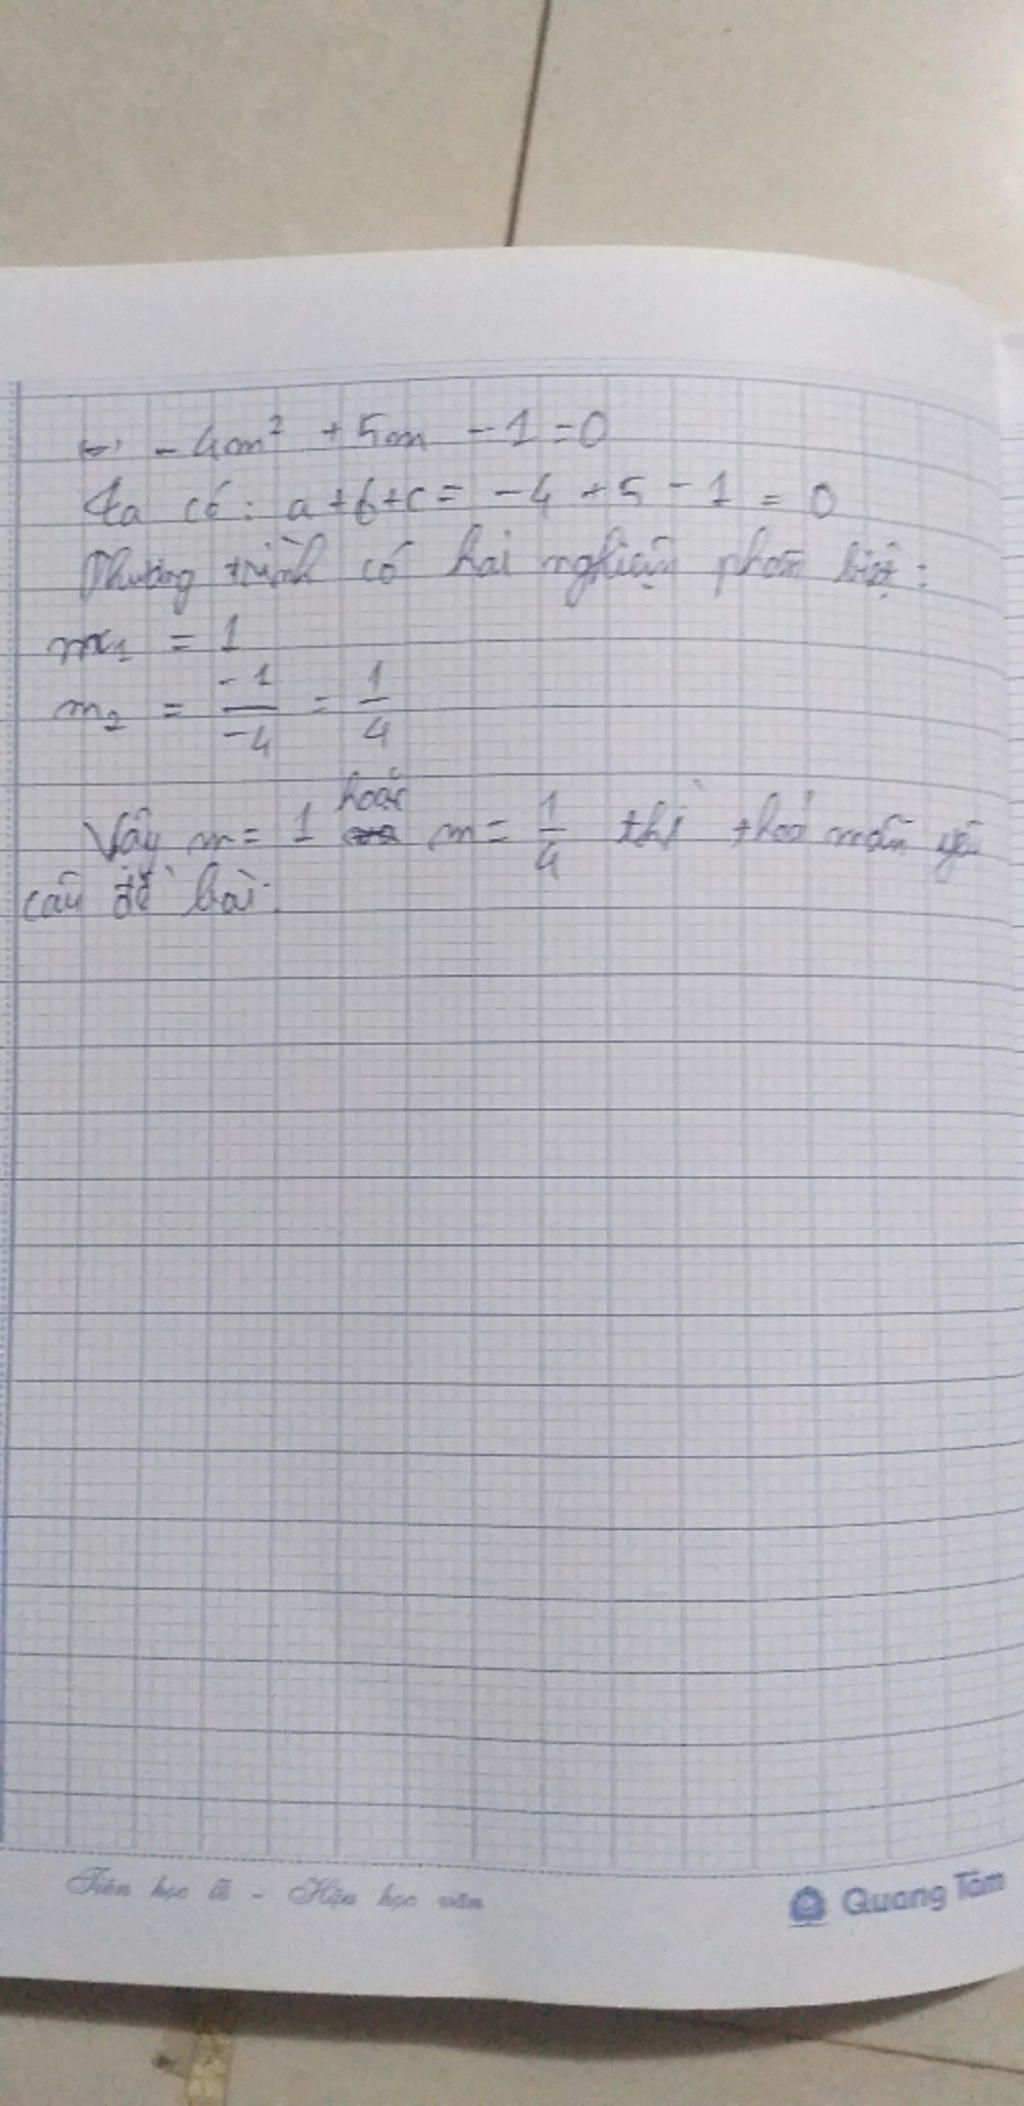 ⇔ -4m² + 5m - 1 = 0
Ta có: a+b+c = -4 + 5 - 1 = 0
Phương trình có hai nghiệm phân biệt:
m₁ = 1
m₂ = -1/-4 = 1/4
Vậy m = 1 hoặc m = 1/4 thì thoả mãn yêu
cầu đề bài.
Tiên học lễ - Hậu học văn
Quang Tâm